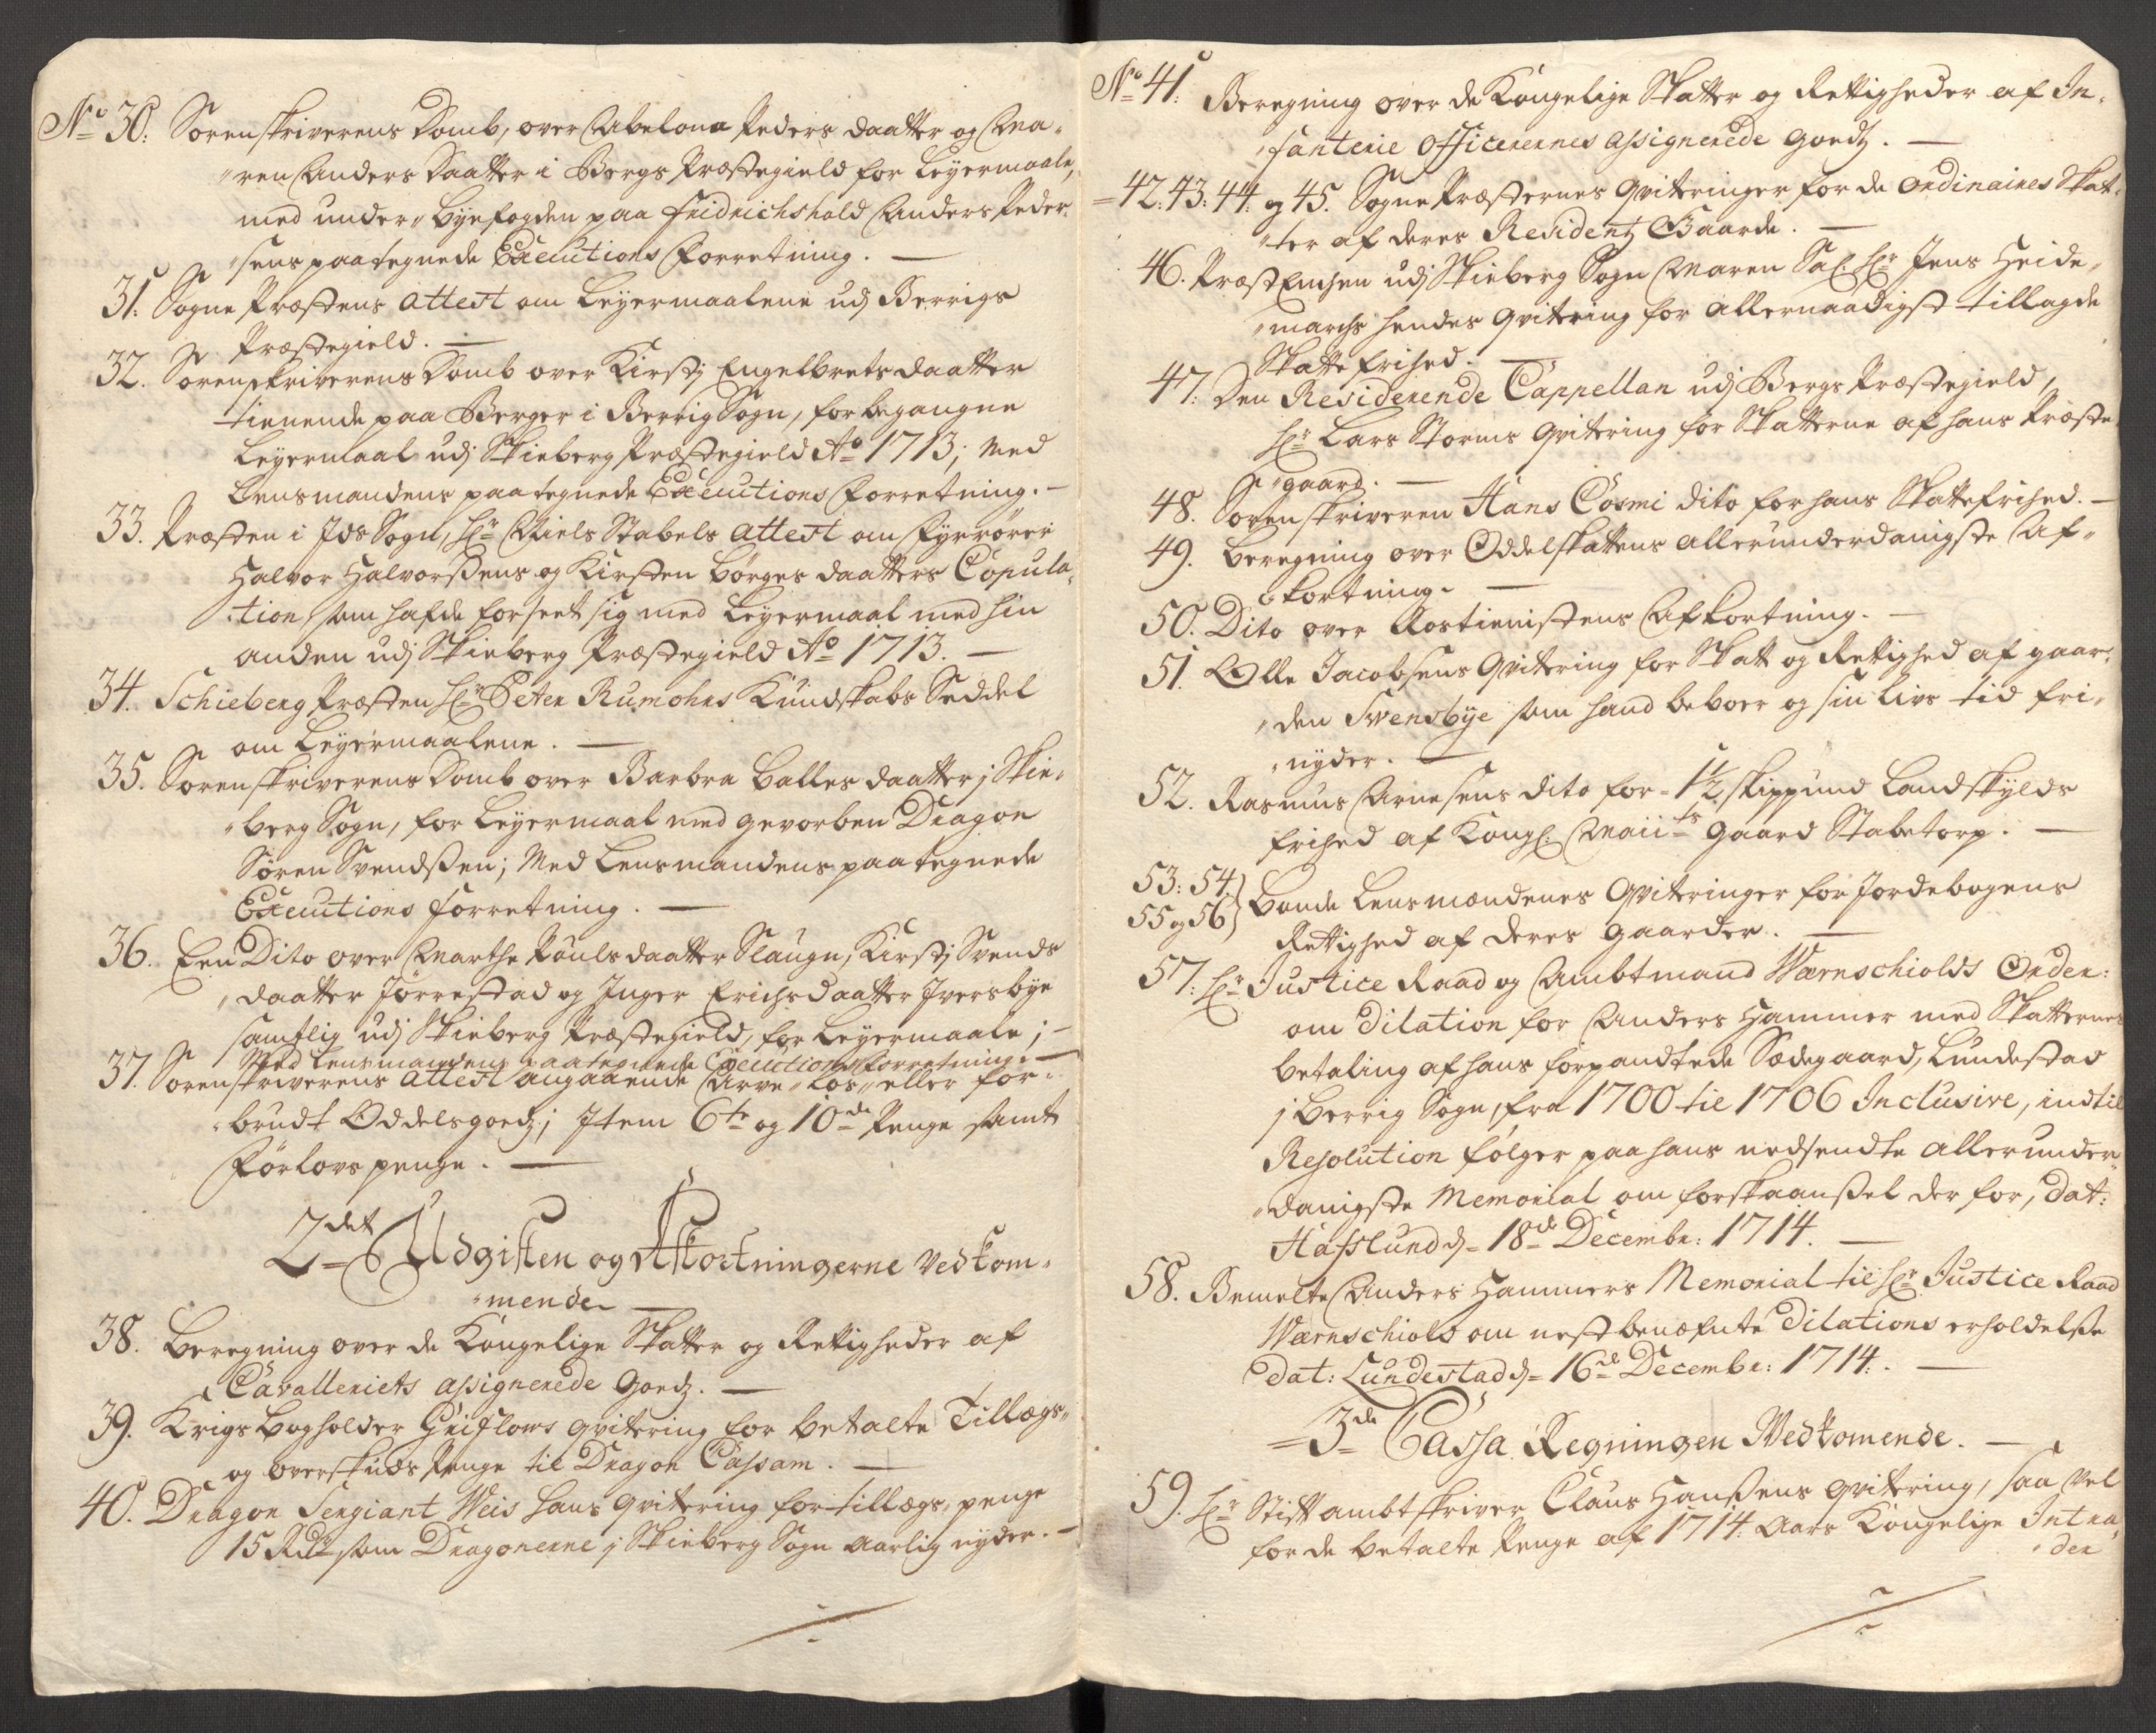 No 30: Sorenskriverens Domb, over Abelona Peders daatter og Ma„
„ren Anders Daatter i Bergs Præstegield for Leyermaale,
med under„ Byefogden paa Fridrichshald Anders Peder„
„sens paategnede Executions Forretning. —
31: Sogne Præstens Attest om Leyermaalene udj Berrigs
Præstegield. —
32. Sorenskriverens Domb over Kirstj Engelbrets daatter
tienende paa Berger i Berrig Sogn, for begangne
Leyermaal udj Skieberg Præstegield Ao 1713; Med
Lensmandens paategnede Executions Forretning. —
33. Præsten i Ids Sogn, Hr Niels Stabels Attest om Fyrrører
Halvor Halvorsens og Kirsten Börges daatters Copula„
„tion, som hafde forseet sig med Leyermaal med hin
anden udj Skieberg Præstegield Ao 1713. —
34. Schieberg Præsten Hr Peter Rumohrs Kundskabs Seddel
om Leyermaalene. —
35. Sorenskriverens Domb over Barbra Balles daatter j Skie„
„berg Sogn, for Leyermaal med gevorben Dragon
Sören Svendsen; Med Lensmandens paategnede
Executions Forretning. —
36. Een Dito over Marthe Poulsdaatter Slaugn, Kirstj Svends
„daatter Jörrestad og Inger Erichsdaatter Iversbye
samtlig udj Skieberg Præstegield, for Leyermaale; —
Med Lensmandens paategnede Executions Forretning. —
37. Sorenskriverens Attest angaaende Arve„ Lös„ eller for„
„brudt Oddelsgoedz; Item 6te og 10de Penge samt
Förlovspenge. —
2det Udgiften og Afkortningerne Vedkom„
„mende —
38. Beregning over de Kongelige Skatter og Rettigheder af
Cavalleriets assignerede Goedz. —
39. Krigs Bogholder Griflows qvitering for betalte Tillægs„
og overskuds Penge til Dragon Cassam. —
40. Dragon Sergiant Weis Hans qvitering for tillægs„ penge
15 Rdr som Dragonerne j Skieberg Sogn Aarlig nyder. —
No 41: Beregning over de Kongelige Skatter og Rettigheder af In„
„fanterie Officerernes assignerede Goedz. —
42: 43: 44: og 45. Sogne Præsternes Qviteringer for de ordinaires Skat„
„ter af deres Residentz Gaarde. —
46. Præst Enchen udj Skieberg Sogn Maren Sal. Hr Jens Heide„
„marchs hendes qvitering for allernaadigst tillagde
Skatte frihed. —
47. Den Residerende Cappellan udj Bergs Præstegield,
Hr Lars Storms qvitering for Skatterne af hans Præste
„gaard. —
48. Sorenskriveren Hans Cosmi dito for hans Skattefrihed. —
49. Beregning over Oddelskattens allerunderdanigste Af„
„kortning. —
50. Dito over Rostienistens Afkortning. —
51. Olle Jacobsens Qvitering for Skatt og Rettighed af gaar„
„den Svensbye som hand beboer og sin livs tid fri„
„nyder. —
52. Rasmus Arnesens dito for 1½ skippund Landskylds
frihed af Kongl. Maiits Gaard Stabetorp. —
53: 54: 55 og 56} Bonde Lensmændenes Qviteringer for Jordebogens
Rettighed af deres gaarder. —
57. Hr Justice Raad og Ambtmand Wærnschiolds Orden:
om Dilation for Anders Hammer med Skatternes
betaling af hans forpandtede Sædegaard, Lundestad
j Berrig Sogn, fra 1700 til 1706 Inclusive, indtil
Resolution fölger paa hans nedsendte allerunder„
„danigste Memorial om forskaansel der for, dat:
Hafslund d. 18de Decembr: 1714. —
58. Bemelte Anders Hammers Memorial til Hr Justice Raad
Wærnschiold om nest benæfnte Dilations erholdelse
dat: Lundestad d. 16de Decembr: 1714. —
3de Cassa Regningen Vedkomende. —
59. Hr Stiftambtskriver Claus Hansens qvitering, saa vel
for de betalte Penge af 1714. Aars Kongelige Intra„
„der